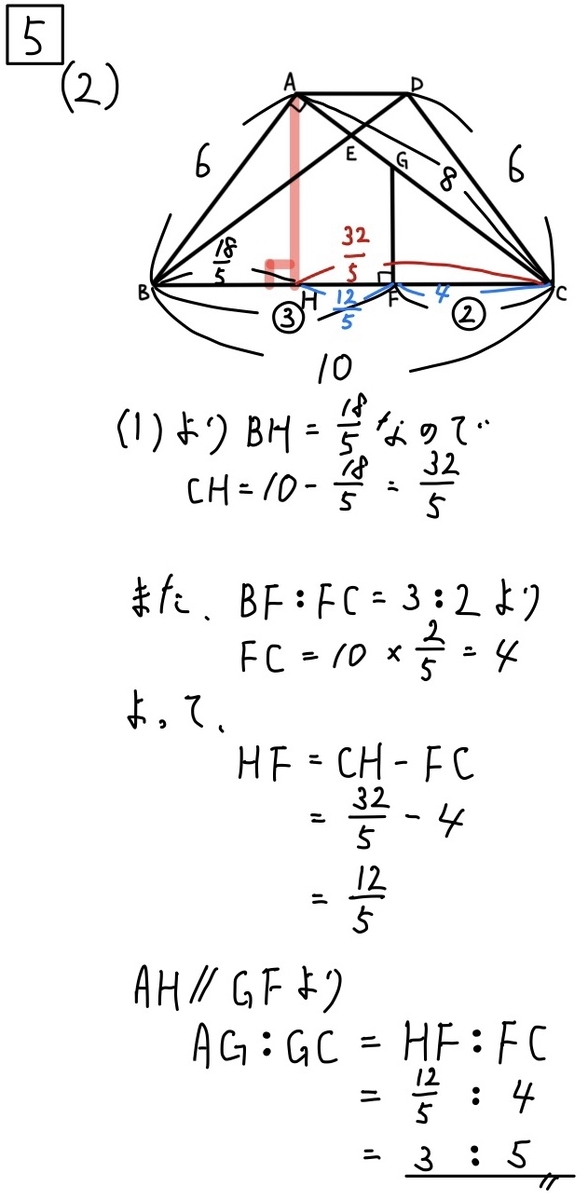 5
(2)
A D
E G
6 8 6
18/5 32/5
B H 12/5 F 4 C
③ ②
10
(1)より BH = 18/5 なので
CH = 10 - 18/5 = 32/5
また、BF:FC = 3:2 より
FC = 10 × 2/5 = 4
よって、
HF = CH - FC
= 32/5 - 4
= 12/5
AH // GF より
AG:GC = HF:FC
= 12/5 : 4
= 3 : 5